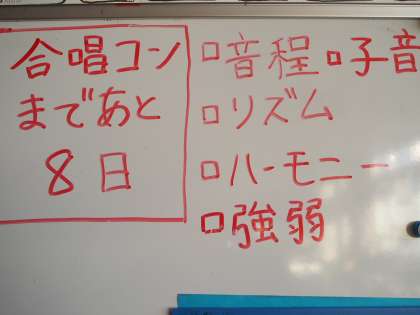 合唱コン
まであと
8日
□音程□子音
□リズム
□ハーモニー
□強弱